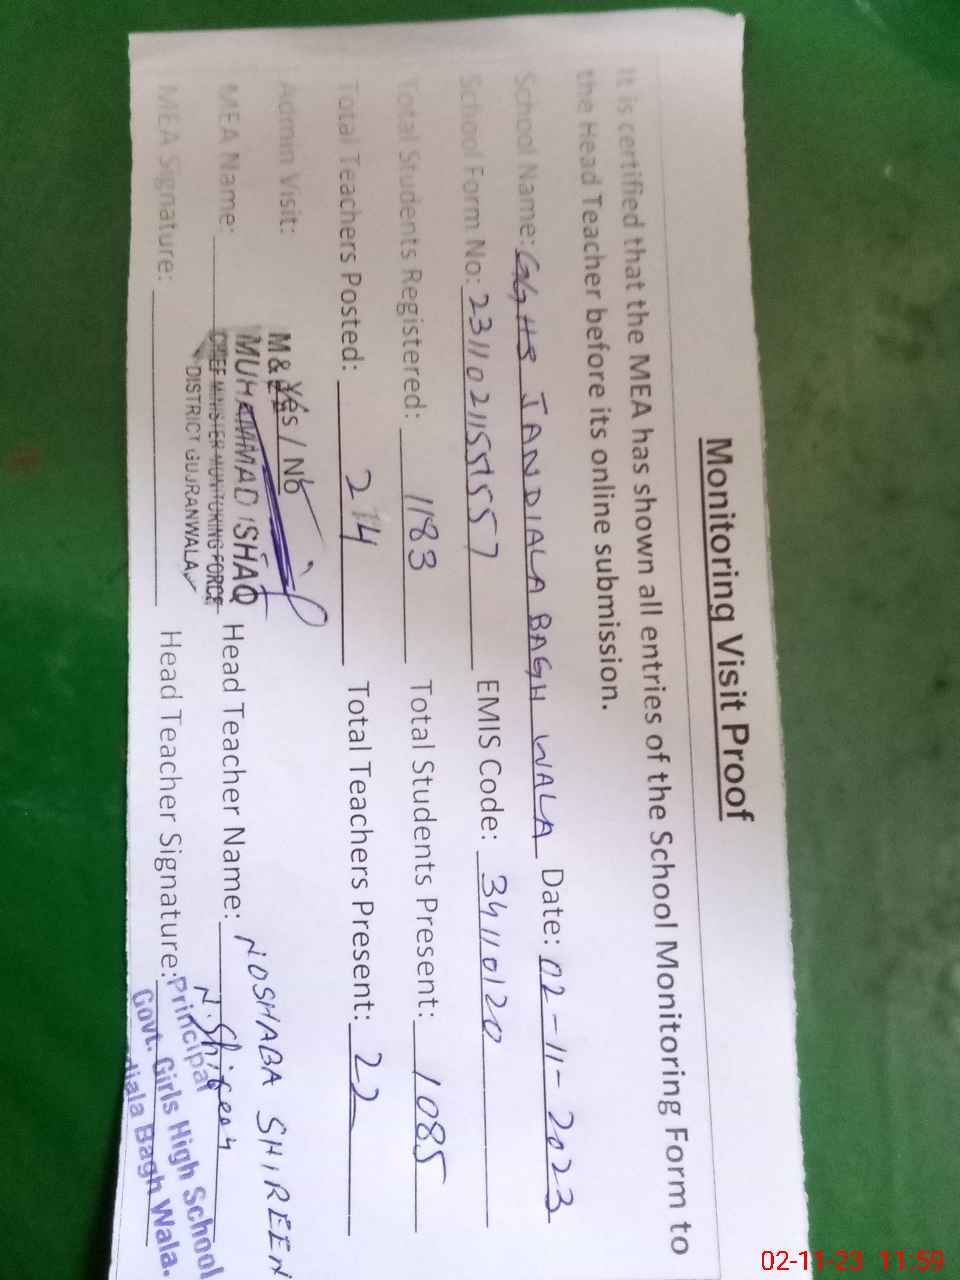 Monitoring Visit Proof
It is certified that the MEA has shown all entries of the School Monitoring Form to
the Head Teacher before its online submission.
School Name: GGHS JANDIALA BAGH WALA Date: 02-11-2023
School Form No: EMIS Code: 34110120
Total Students Registered: 1183 Total Students Present: 1085
Total Teachers Posted: 24 Total Teachers Present: 22
Admin Visit: Yes / No
M &
MEA Name: MUHAMMAD ISHAQ Head Teacher Name: NOSHABA SHIREEN
CHIEF MINISTER MONITORING FORCE
DISTRICT GUJRANWALA
MEA Signature: Head Teacher Signature: N. Shireen
Principal
Govt. Girls High School
diala Bagh Wala.
02-11-23 11:59